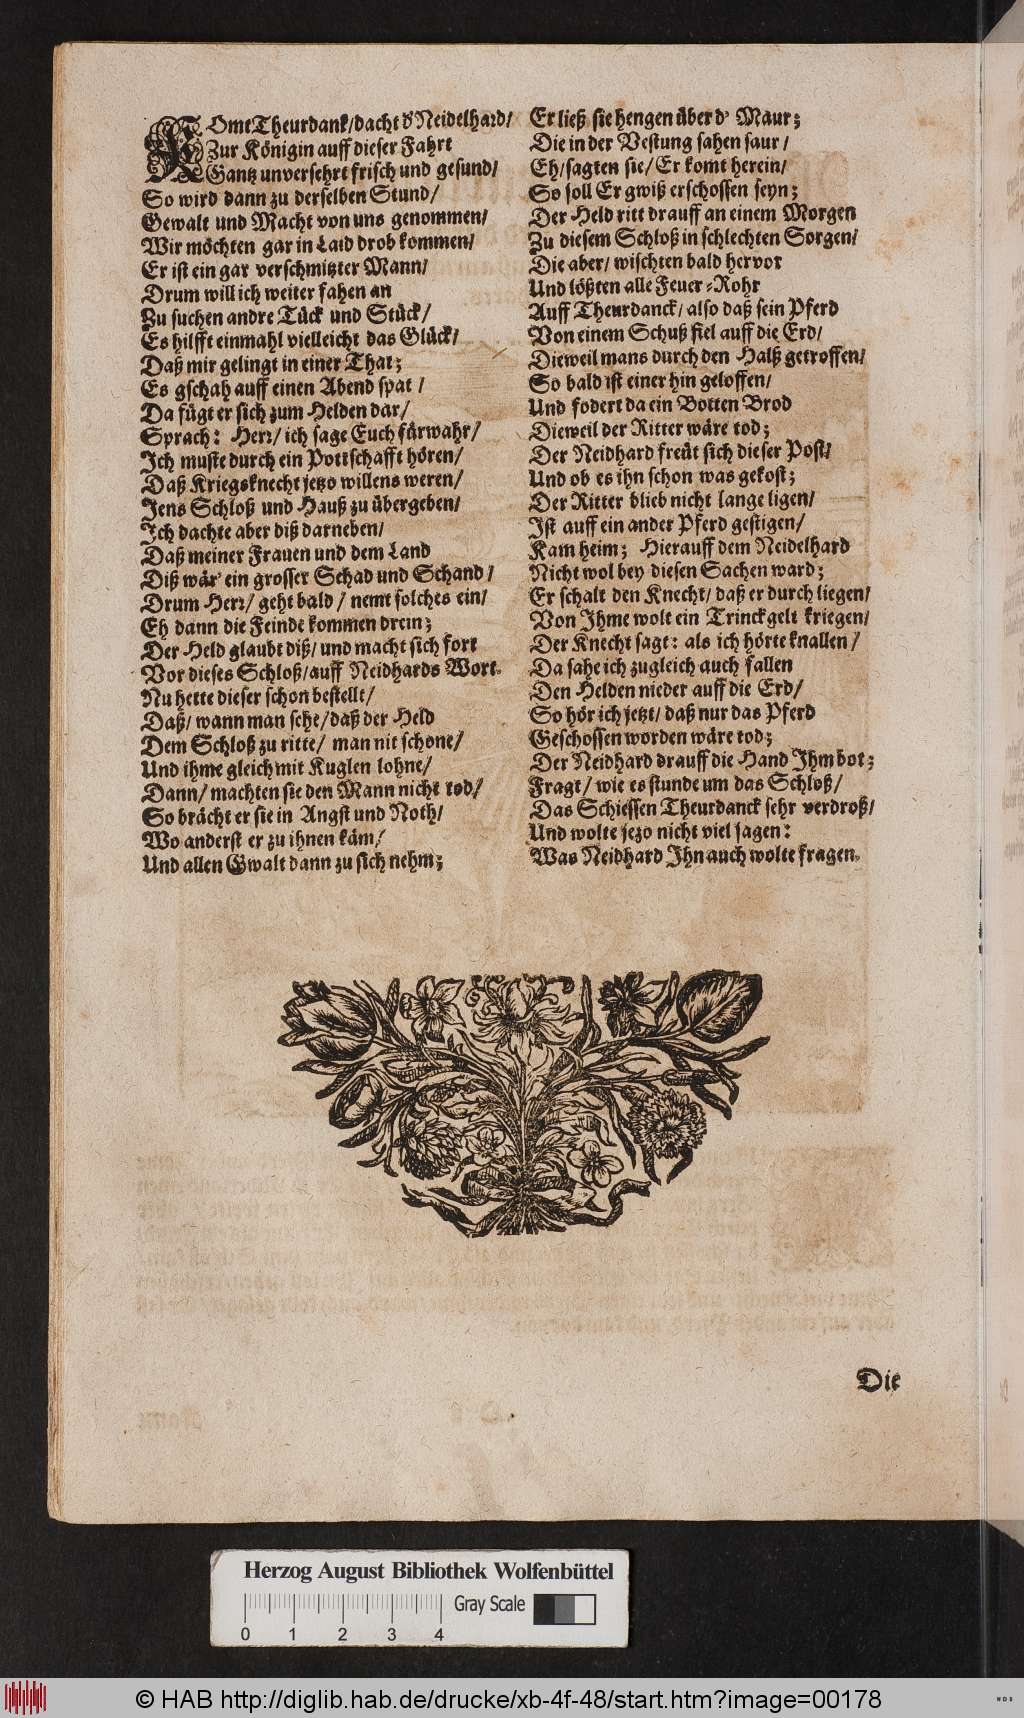 KOmt Theurdank/dacht d' Neidelhard/
Zur Königin auff dieser Fahrt
Gantz unversehrt frisch und gesund/
So wird dann zu derselben Stund/
Gewalt und Macht von uns genommen/
Wir möchten gar in Laid drob kommen/
Er ist ein gar verschmitzter Mann/
Drum will ich weiter fahen an
Zu suchen andre Tück und Stück/
Es hilfft einmahl vielleicht das Glück/
Daß mir gelingt in einer That;
Es gschah auff einen Abend spat/
Da fügt er sich zum Helden dar/
Sprach: Herr/ ich sage Euch fürwahr/
Ich muste durch ein Pottschafft hören/
Daß Kriegsknecht jetzo willens weren/
Jens Schloß und Hauß zu übergeben/
Ich dachte aber diß darneben/
Daß meiner Frauen und dem Land
Diß wär' ein grosser Schad und Schand/
Drum Herr/ geht bald/ nemt solches ein/
Eh dann die Feinde kommen drein;
Der Held glaubt diß/ und macht sich fort
Vor dieses Schloß/auff Neidhards Wort.
Nu hette dieser schon bestellt/
Daß/ wann man sehe/ daß der Held
Dem Schloß zu ritte/ man nit schone/
Und ihme gleich mit Kuglen lohne/
Dann/ machten sie den Mann nicht tod/
So brächt er sie in Angst und Noth/
Wo anderst er zu ihnen käm/
Und allen Gwalt dann zu sich nehm;
Er ließ sie hengen über d' Maur;
Die in der Vestung sahen saur/
Eh/sagten sie/ Er komt herein/
So soll Er gwiß erschossen seyn;
Der Held ritt drauff an einem Morgen
Zu diesem Schloß in schlechten Sorgen/
Die aber/ wischten bald hervor
Und lößten alle Feuer-Rohr
Auff Theurdanck/ also daß sein Pferd
Von einem Schuß fiel auff die Erd/
Dieweil mans durch den Halß getroffen/
So bald ist einer hin geloffen/
Und fodert da ein Botten Brod
Dieweil der Ritter wäre tod;
Der Neidhard freut sich dieser Post/
Und ob es ihn schon was gekost;
Der Ritter blieb nicht lange ligen/
Ist auff ein ander Pferd gestigen/
Kam heim; Hierauff dem Neidelhard
Nicht wol bey diesen Sachen ward;
Er schalt den Knecht/ daß er durch liegen/
Von Ihme wolt ein Trinckgelt kriegen/
Der Knecht sagt: als ich hörte knallen/
Da sahe ich zugleich auch fallen
Den Helden nieder auff die Erd/
So hör ich jetzt/ daß nur das Pferd
Geschossen worden wäre tod;
Der Neidhard drauff die Hand Ihm bot;
Fragt/ wie es stunde um das Schloß/
Das Schiessen Theurdanck sehr verdroß/
Und wolte jezo nicht viel sagen:
Was Neidhard Ihn auch wolte fragen.
Die
Herzog August Bibliothek Wolfenbüttel
Gray Scale
0 1 2 3 4
© HAB http://diglib.hab.de/drucke/xb-4f-48/start.htm?image=00178